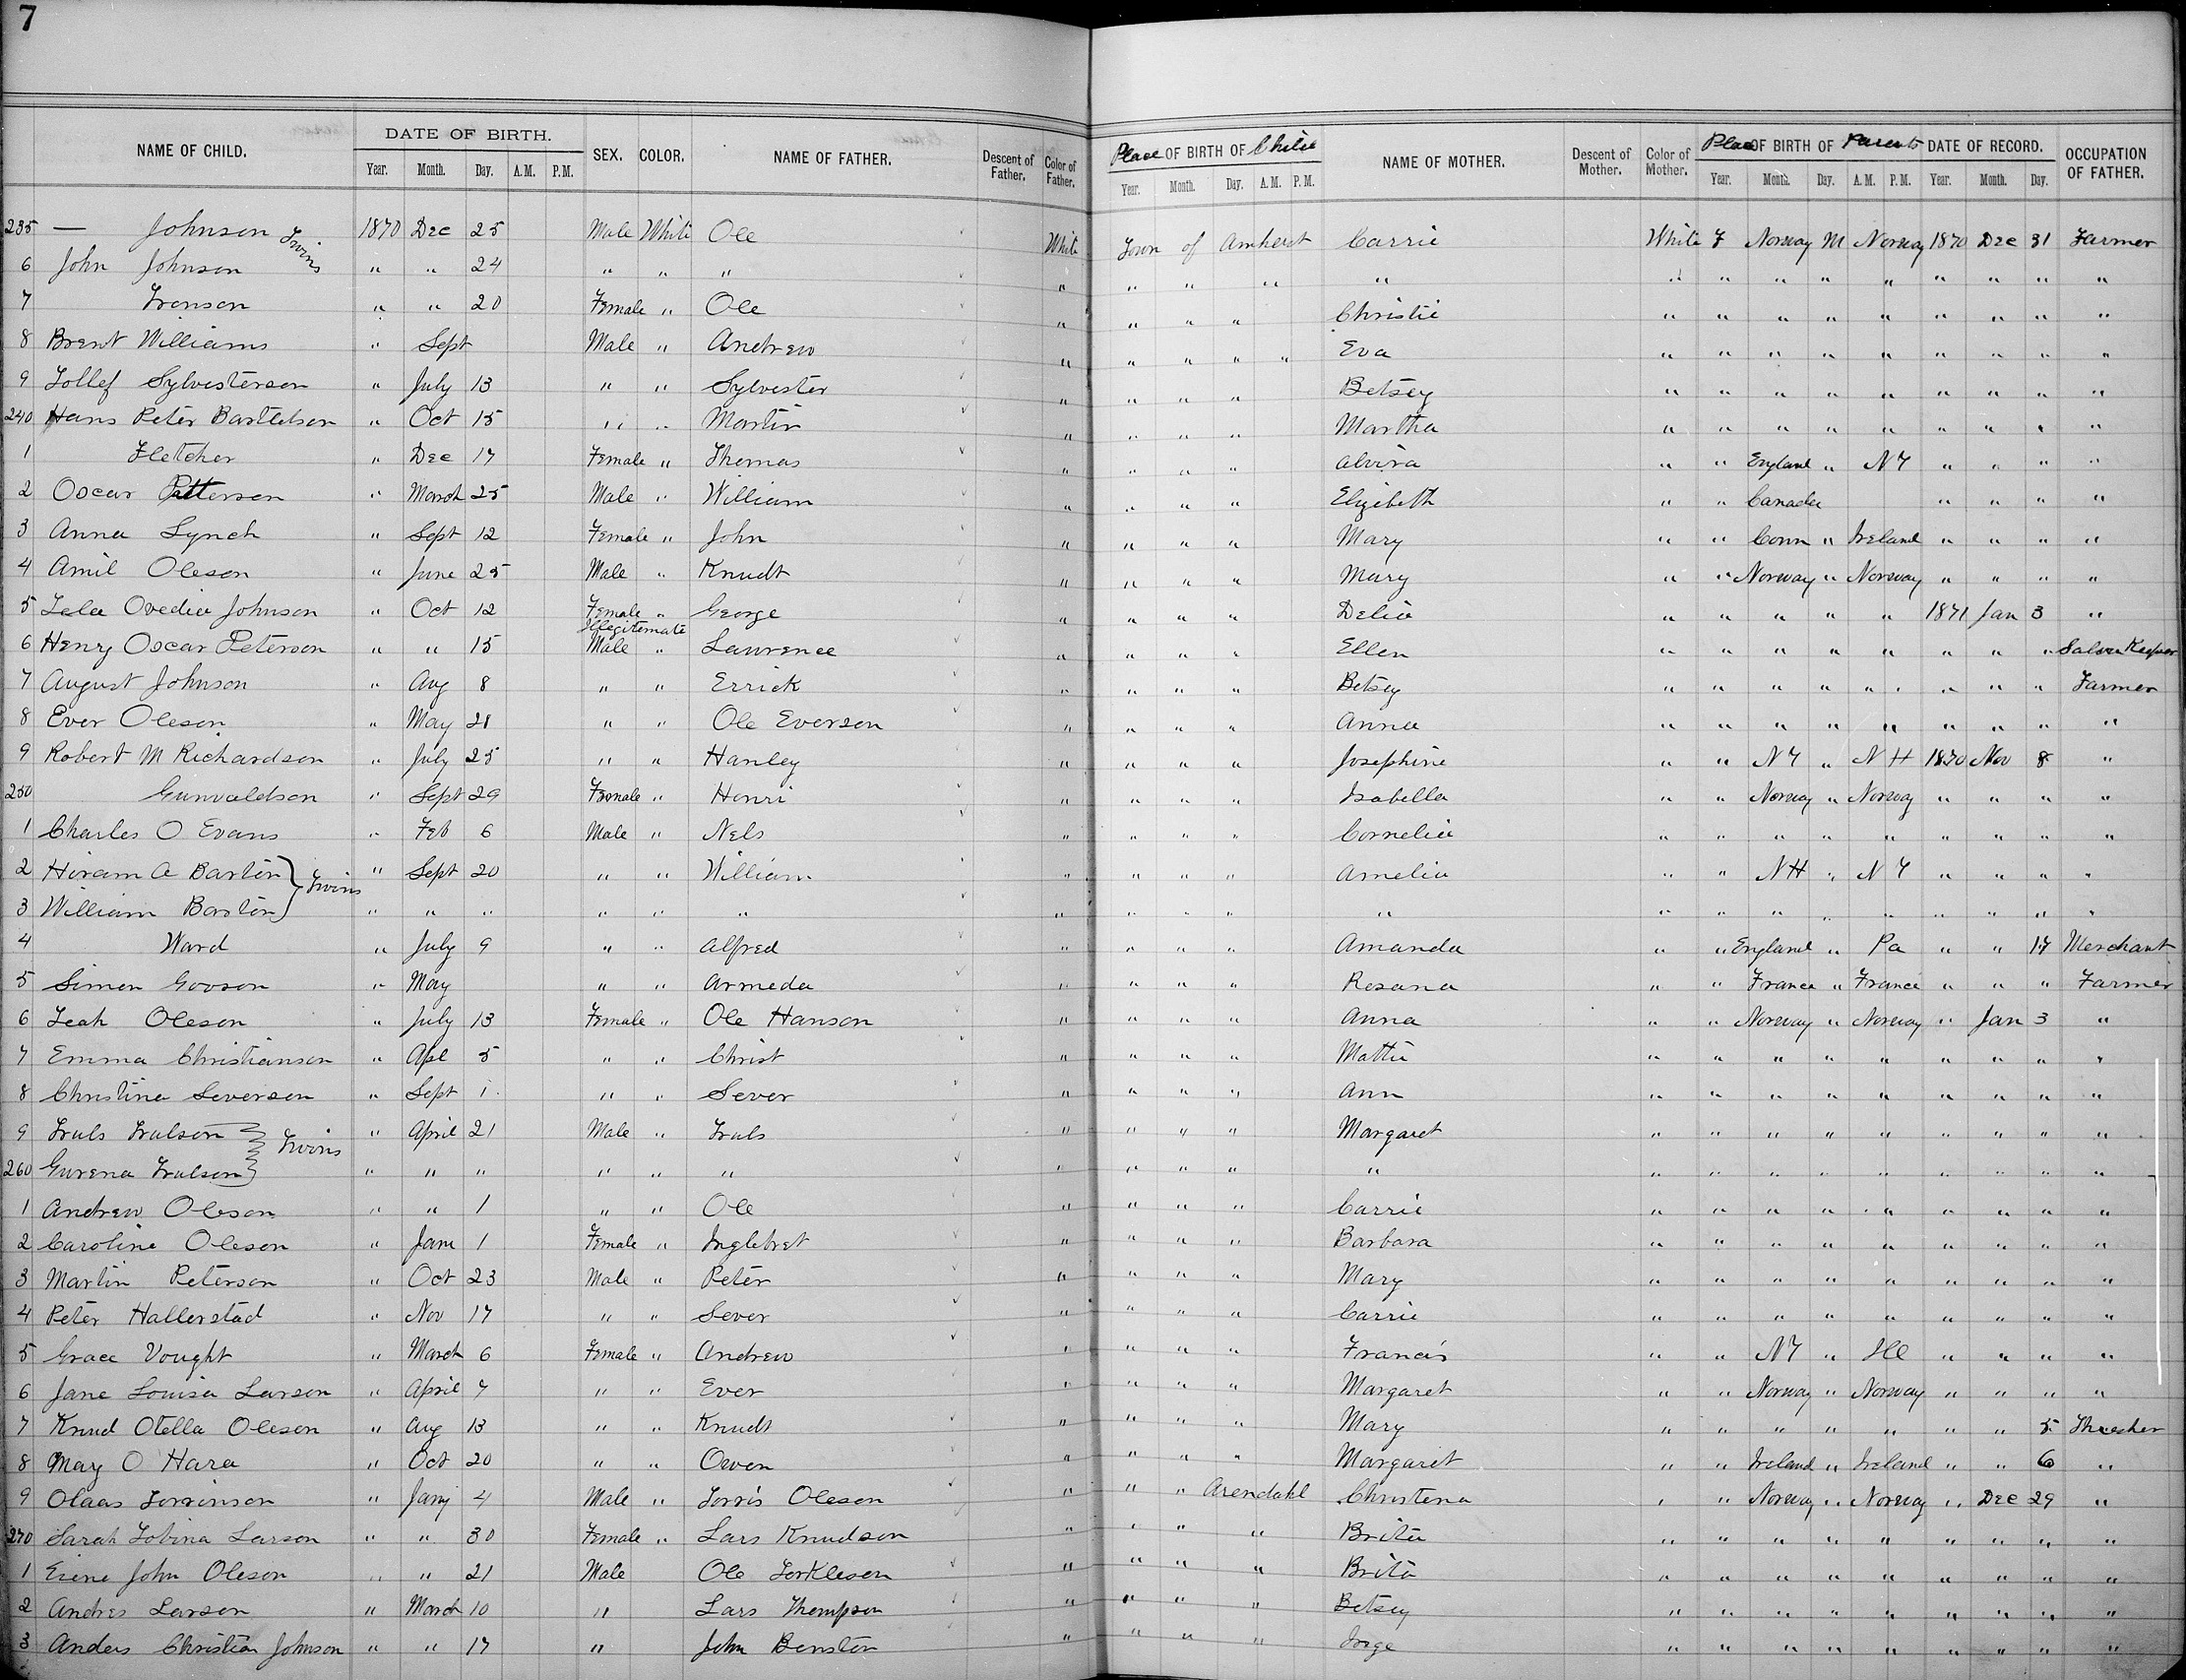 7
NAME OF CHILD. DATE OF BIRTH. Year. Month. Day. A.M. P.M. SEX. COLOR. NAME OF FATHER. Descent of Father. Color of Father. Place OF BIRTH OF Child Year. Month. Day. A.M. P.M. NAME OF MOTHER. Descent of Mother. Color of Mother. Place OF BIRTH OF Parents Year. Month. Day. A.M. P.M. DATE OF RECORD. Year. Month. Day. OCCUPATION OF FATHER.
235 — Johnson Twins 1870 Dec 25 Male White Ole White Town of Amherst Carrie White F Norway M Norway 1870 Dec 31 Farmer
6 John Johnson " " 24 " " " " " " " " " " " " " " " " "
7 Tronson " " 20 Female " Ole " " " " Christie " " " " " " " " "
8 Brent Williams " Sept Male " Andrew " " " " " Eva " " " " " " " " "
9 Tollef Sylvesterson " July 13 " " Sylvester " " " " Betsey " " " " " " " " "
240 Hans Peter Bartlelson " Oct 15 " " Martin " " " " Martha " " " " " " " " "
1 Fletcher " Dec 17 Female " Thomas " " " " Alvira " " England " NY " " " "
2 Oscar Patterson " March 25 Male " William " " " " Elizibeth " " Canada " " " "
3 Anna Lynch " Sept 12 Female " John " " " " Mary " " Conn " Ireland " " " "
4 Amil Oleson " June 25 Male " Knudt " " " " Mary " " Norway " Norway " " " "
5 Lela Ovedia Johnson " Oct 12 Female " George " " " " Delia " " " " " 1871 Jan 3 "
Illegitemate
6 Henry Oscar Peterson " " 15 Male " Lawrence " " " " Ellen " " " " " " " " Saloon Keeper
7 August Johnson " Aug 8 " " Errick " " " " Betsey " " " " " " " " Farmer
8 Ever Oleson " May 28 " " Ole Everson " " " " Anna " " " " " " " " "
9 Robert M Richardson " July 25 " " Hanley " " " " Josephine " " NY " NH 1870 Nov 8 "
250 Gunvaldson " Sept 29 Female " Henri " " " " Isabella " " Norway " Norway " " " "
1 Charles O Evans " Feb 6 Male " Nels " " " " Cornelia " " " " " " " " "
2 Hiram A Barton } Twins " Sept 20 " " William " " " " Amelia " " NH " NY " " " "
3 William Barton } " " " " " " " " " " " " " " " " " " " "
4 Ward " July 9 " " Alfred " " " " Amanda " " England " Pa " " 17 Merchant
5 Simon Gooson " May " " Armeda " " " " Rosana " " France " France " " " Farmer
6 Leah Oleson " July 13 Female " Ole Hanson " " " " Anna " " Norway " Norway " Jan 3 "
7 Emma Christianson " Apl 5 " " Christ " " " " Mattie " " " " " " " " "
8 Christina Severson " Sept 1 " " Sever " " " " Ann " " " " " " " " "
9 Truls Trulson } Twins " April 21 Male " Truls " " " " Margaret " " " " " " " " "
260 Gurena Trulson } " " " " " " " " " " " " " " " " " " " "
1 Andrew Oleson " " 1 " " Ole " " " " Carrie " " " " " " " " "
2 Caroline Oleson " Jane 1 Female " Inglebret " " " " Barbara " " " " " " " " "
3 Martin Peterson " Oct 23 Male " Peter " " " " Mary " " " " " " " " "
4 Peter Hallerstad " Nov 17 " " Sever " " " " Carrie " " " " " " " " "
5 Grace Vought " March 6 Female " Andrew " " " " Francis " " NY " Ill " " " "
6 Jane Louisa Larson " April 7 " " Ever " " " " Margaret " " Norway " Norway " " " "
7 Knud Otella Oleson " Aug 13 " " Knudt " " " " Mary " " " " " " " 5 Thresher
8 May O Hara " Oct 20 " " Owen " " " " Margaret " " Ireland " Ireland " " 6 "
9 Olaas Torrinson " Jany 4 Male " Torris Oleson " " " Arendahl Christena " " Norway " Norway " Dec 29 "
270 Sarah Tobina Larson " " 30 Female " Lars Knudson " " " " Brita " " " " " " " " "
1 Eiene John Oleson " " 21 Male Ole Torkleson " " " " Brita " " " " " " " " "
2 Andres Larson " March 10 " Lars Thompson " " " " Betsey " " " " " " " " "
3 Anders Christian Johnson " " 17 " John Benston " " " " Inge " " " " " " " " "